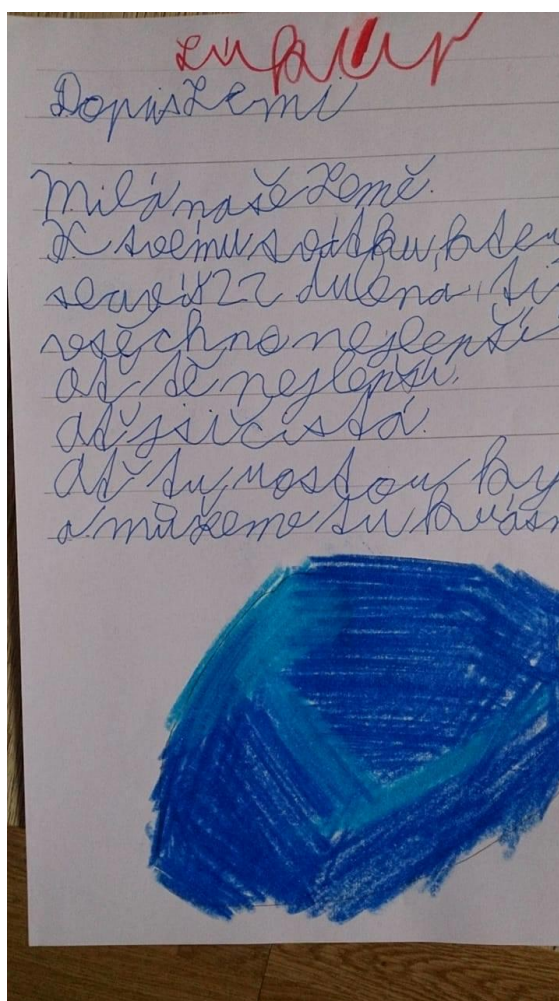 Dopis Zemi
Milá naše Země.
K svému svátku, kter
slaví 22 dubna, ti
všechno nejlepší
ať tě nejlepší.
Ať jsi čistá.
Ať tu rostou ky
a můžeme tu krásn